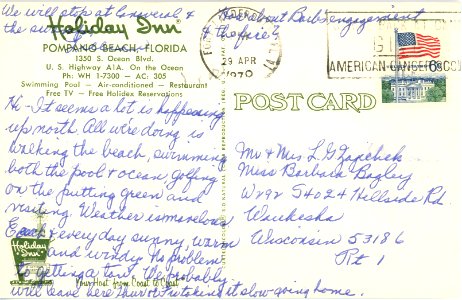 We will stop at General &
the su
Holiday Inn
POMPANO BEACH, FLORIDA
1350 S. Ocean Blvd.
U. S. Highway A1A. On the Ocean
Ph: WH 1-7300 — AC: 305
Swimming Pool — Air-conditioned — Restaurant
Free TV — Free Holidex Reservations
Hi - It seems a lot is happening
up north. All we're doing is
walking the beach, swimming
both the pool & ocean, golfing
on the putting green, and
visiting. Weather is marvelous
Each & every day sunny, warm
and windy. No problem
to getting a tan. We probably
will leave here Thur or Fri taking it slow going home.
Holiday Inn
Your Host from Coast to Coast
How about Barb's engagement
& the fire?
29 APR
1970
AMERICAN CANCER SOC
6c
POST CARD
Mr & Mrs L G
Miss Barbara Bagley
W292 S4024 Hillside Rd
Waukesha
Wisconsin 53186
Rt 1